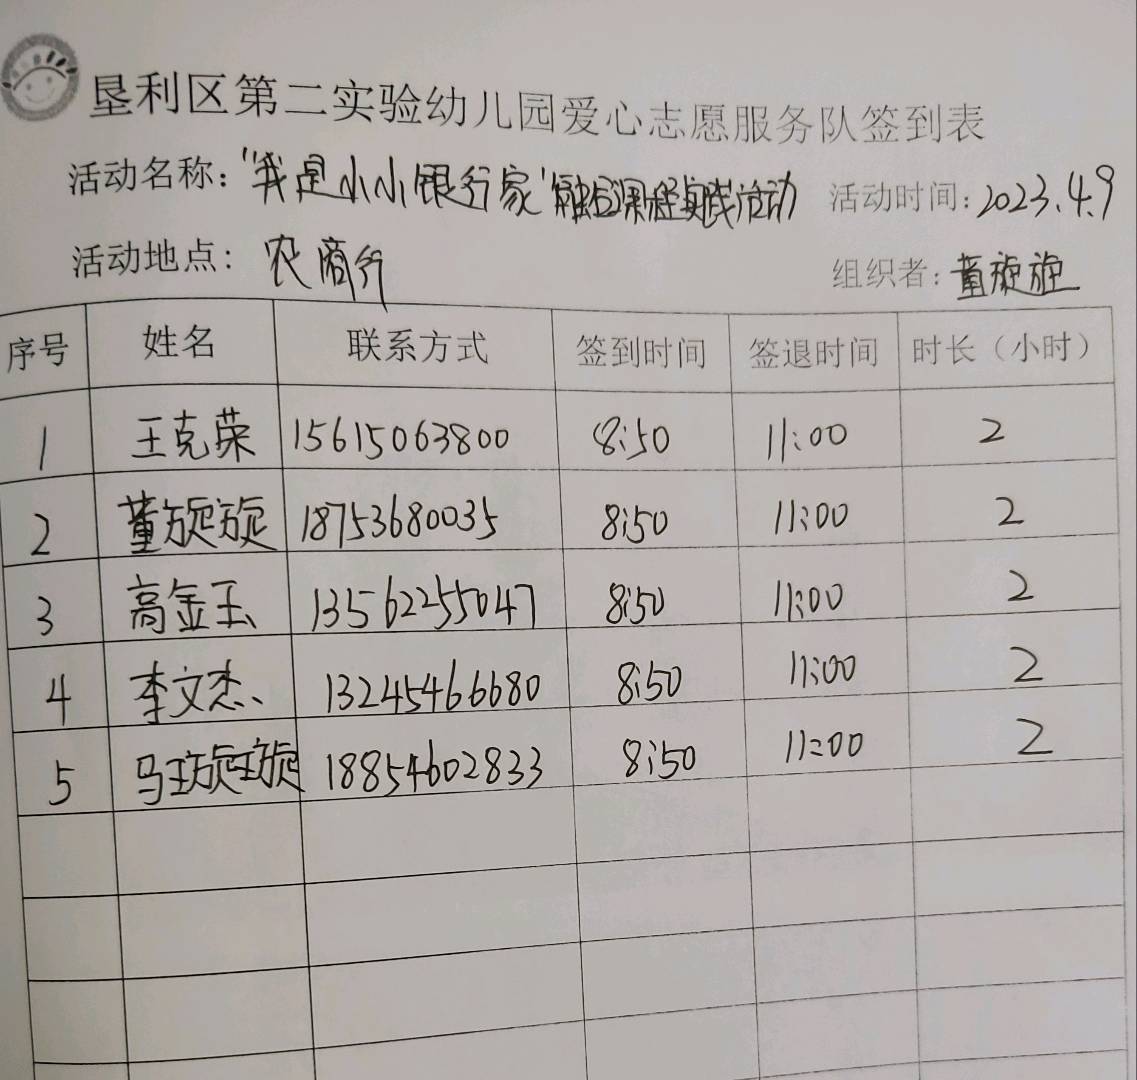 垦利区第二实验幼儿园爱心志愿服务队签到表
活动名称：“我是小小银行家”融合课程实践活动 活动时间：2023.4.9
活动地点：农商行 组织者：董旋旋
序号 姓名 联系方式 签到时间 签退时间 时长（小时）
1 王克荣 15615063800 8:50 11:00 2
2 董旋旋 18753680035 8:50 11:00 2
3 高金玉 13562255047 8:50 11:00 2
4 李文杰 13245466680 8:50 11:00 2
5 马璇璇 18854602833 8:50 11:00 2